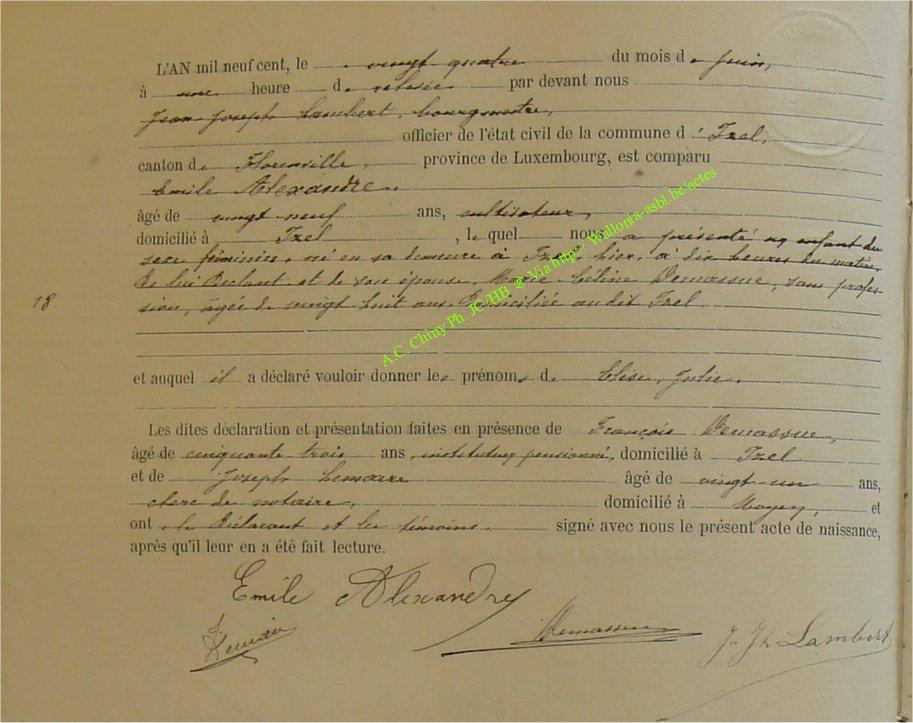 L'AN mil neuf cent, le vingt quatre du mois de juin,
à une heure de relevée par devant nous
Jean Joseph Lambert, bourgmestre,
officier de l'état civil de la commune d'Izel,
canton de Florenville, province de Luxembourg, est comparu
Emile Alexandre,
âgé de vingt neuf ans, cultivateur,
domicilié à Izel, lequel nous a présenté un enfant du
sexe féminin, né en sa demeure à Izel, hier, à dix heures du matin,
de lui Déclarant et de son épouse, Marie Céline Demassue, sans profes-
sion, âgée de vingt huit ans, domiciliée audit Izel.
18
et auquel il a déclaré vouloir donner les prénoms de Elise, Julie.
Les dites déclaration et présentation faites en présence de François Demassue,
âgé de cinquante trois ans, instituteur pensionné, domicilié à Izel
et de Joseph âgé de vingt-un ans,
clerc de notaire, domicilié à Moyen, et
ont, le Déclarant et les témoins, signé avec nous le présent acte de naissance,
après qu'il leur en a été fait lecture.
Emile Alexandre
Demassue
J. Jh Lambert
A.C. Chiny Ph. JC/HB @ Via http// Wallonia-asbl.be/actes